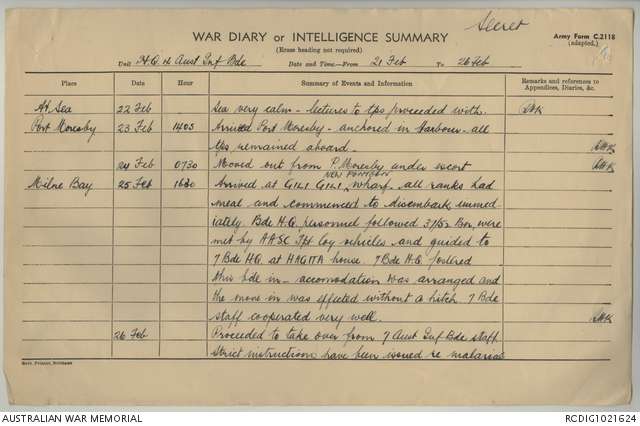 Secret
WAR DIARY or INTELLIGENCE SUMMARY
(Erase heading not required)
Army Form C.2118
(adapted.)
Unit H.Q. 4 Aust Inf Bde Date and Time—From 21 Feb To 26 Feb
Place Date Hour Summary of Events and Information Remarks and references to Appendices, Diaries, &c.
At Sea 22 Feb Sea very calm – lectures to tps proceeded with.
Port Moresby 23 Feb 1405 Arrived Port Moresby – anchored in Harbour – all
tps remained aboard.
24 Feb 0730 Moved out from P. Moresby under escort
NEW PONTOON
Milne Bay 25 Feb 1630 Arrived at GILI GILI, wharf. all ranks had
meal and commenced to disembark immed
iately. Bde H.Q. personnel followed 37/52 Bn, were
met by AASC Tpt Coy vehicles and guided to
7 Bde HQ. at HAGITA house. 7 Bde H.Q. fostered
this bde in – accomodation was arranged and
the move in was effected without a hitch 7 Bde
staff cooperated very well.
26 Feb Proceeded to take over from 7 Aust Inf Bde staff.
Strict instructions have been issued re malarial
Govt. Printer, Brisbane
AUSTRALIAN WAR MEMORIAL RCDIG1021624